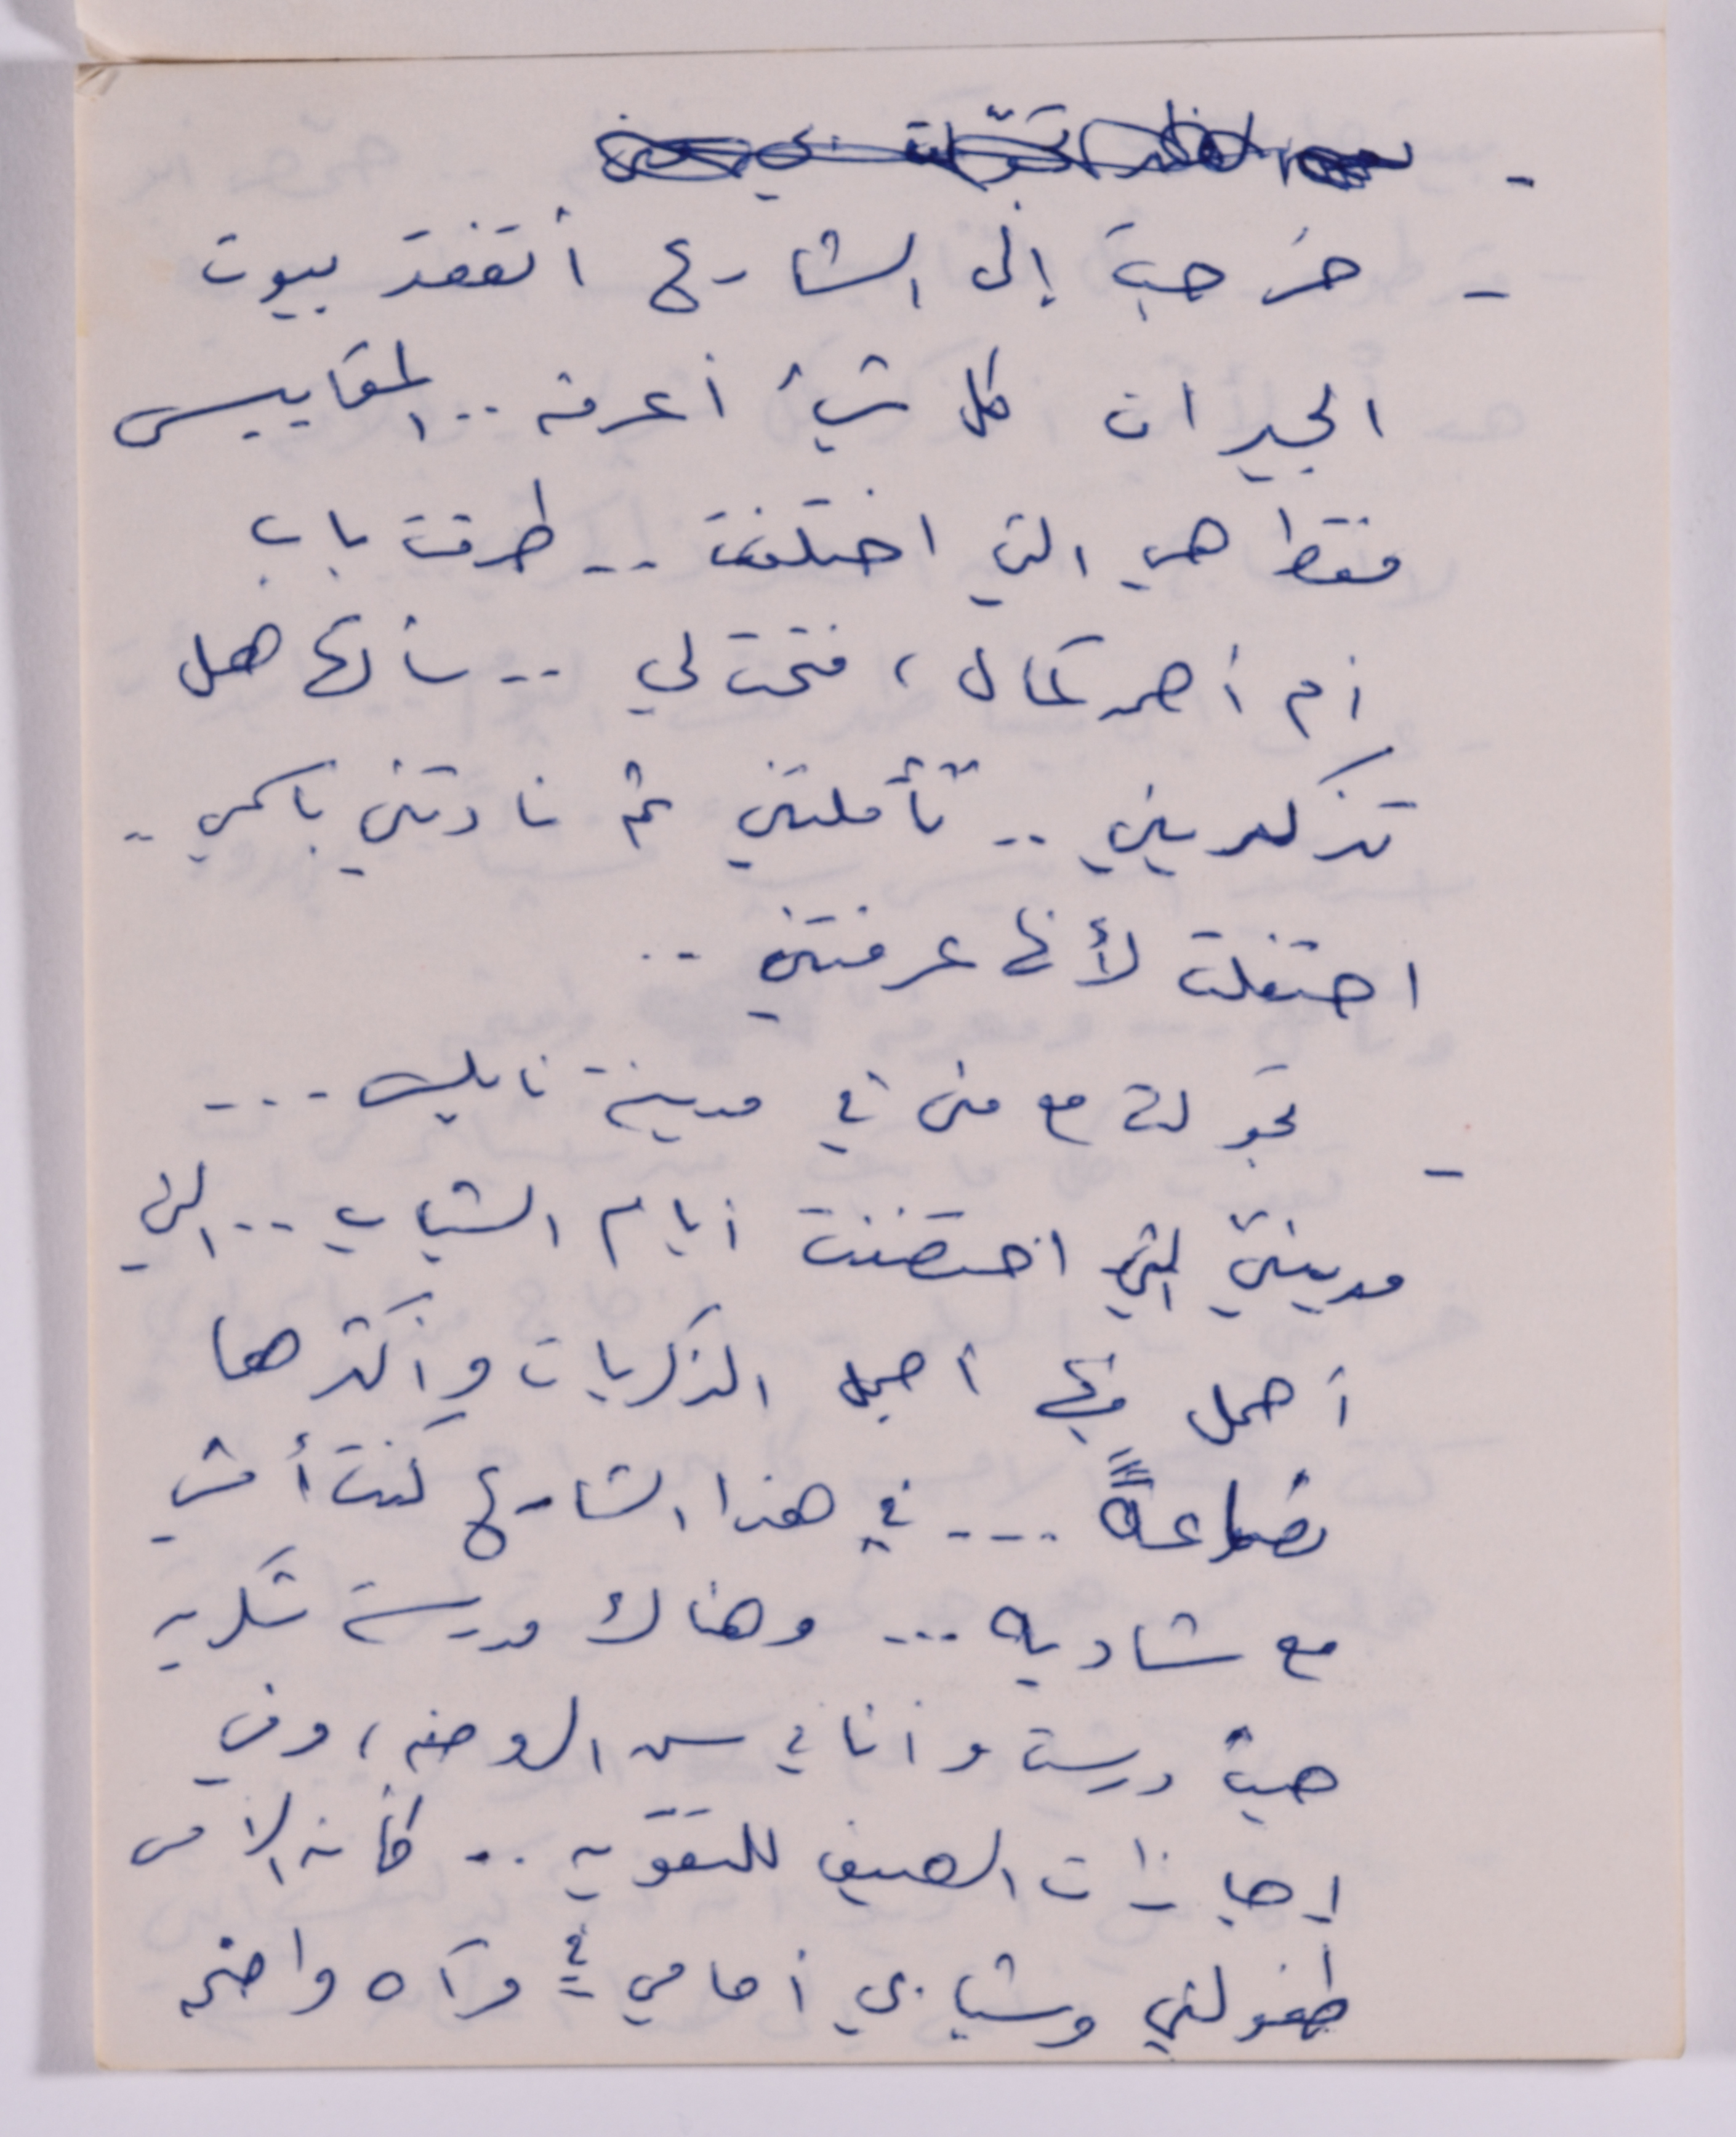 - خرجت إلى الشارع أتفقد بيوت
الجيران كل شيء أعرفه .. المقاييس
فقط هي التي اختلفت .. طرقت باب
أم أحمد كمال ، فتحت لي .. سألتها هل
تذكريني .. تأملتني ثم نادتني باسمي ..
احتفلت لأنها عرفتني ..
- تجولت مع منى في مدينة نابلس ...
مدينتي التي احتضنت أيام الشباب .. التي
أحمل فيها أجمل الذكريات وأكثرها
نصاعةً ... في هذا الشارع كنت أمشي
مع شاديه ... وهناك مدرسة
حيث درست وأنا في سن الروضه ، وفي
إجازات الصيف للتقويه .. كأنه الأمس
طفولتي وشبابي أمامي في مرآه واضحه